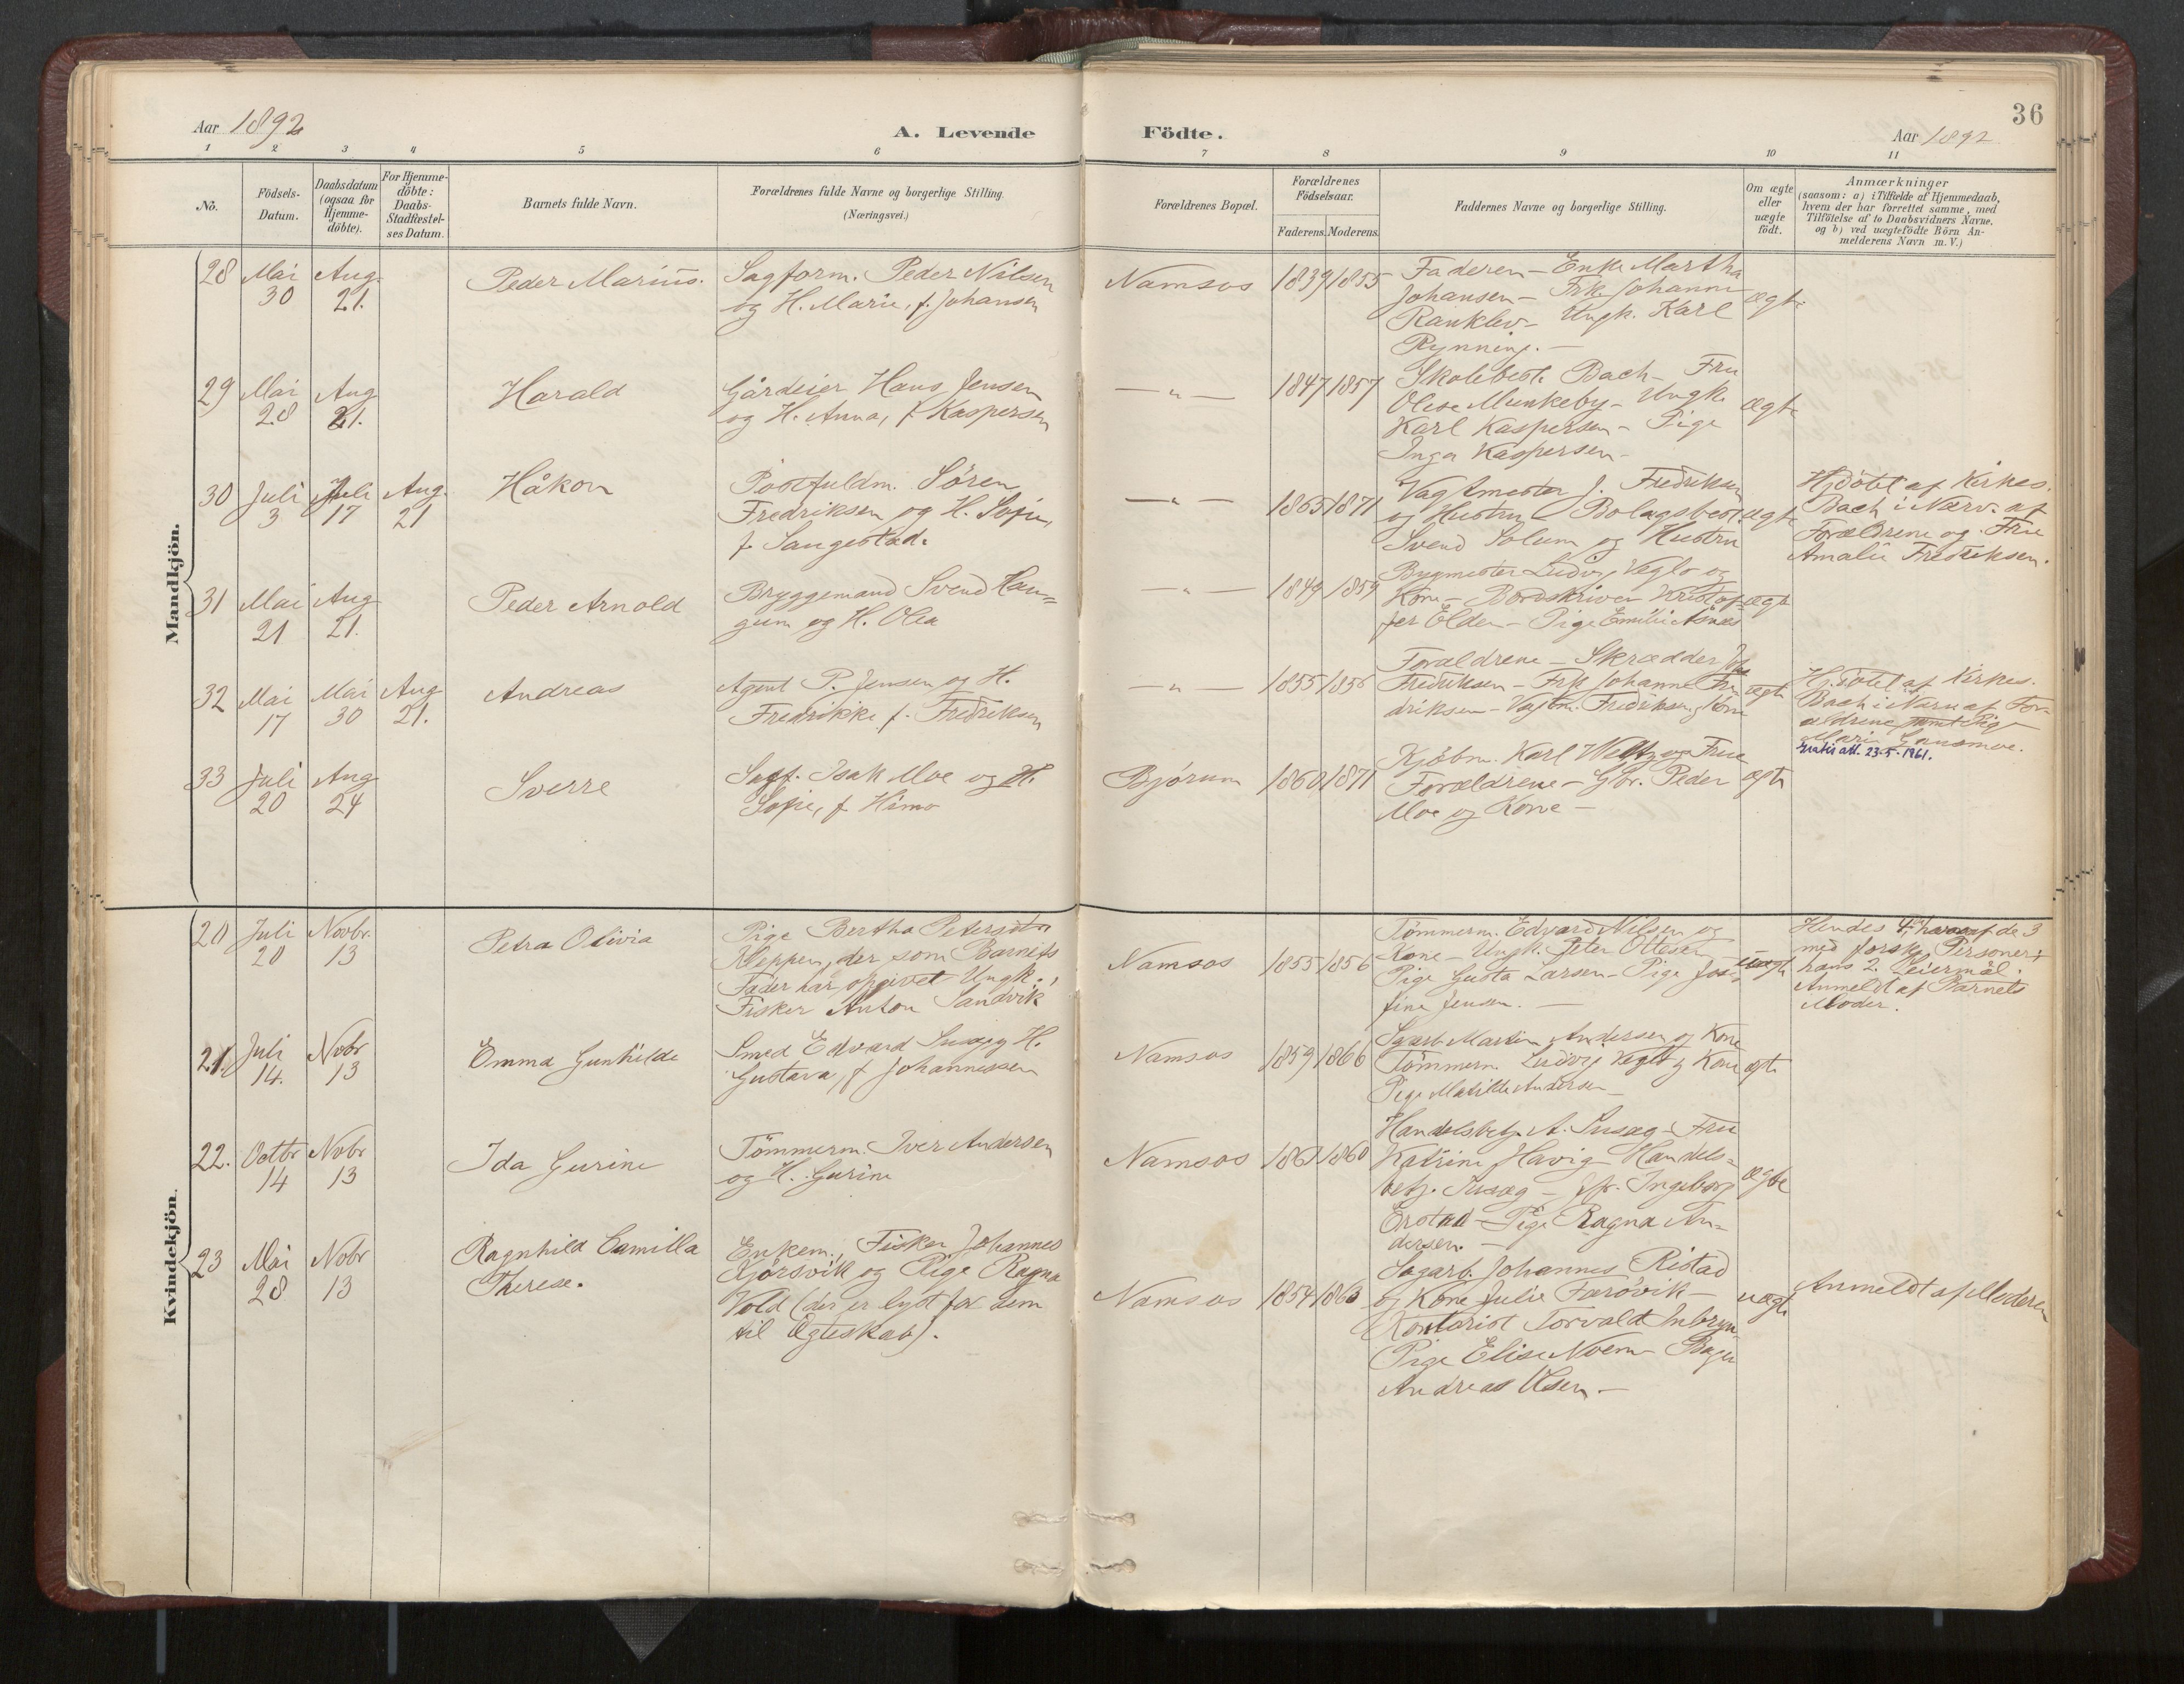 36
Aar 1892
A. Levende
Födte.
Aar 1892
1 2 3 4 5 6 7 8 9 10 11
No.
Födsels-
Datum.
Daabsdatum
(ogsaa for
Hjemme-
döbte).
For Hjemme-
döbte:
Daabs-
Stadfæstel-
ses Datum.
Barnets fulde Navn.
Forældrenes fulde Navne og borgerlige Stilling.
(Næringsvei.)
Forældrenes Bopæl.
Forældrenes
Födselsaar.
Faderens. Moderens.
Faddernes Navne og borgerlige Stilling.
Om ægte
eller
uægte
födt.
Anmærkninger
(saasom: a) i Tilfælde af Hjemmedaab,
hvem der har forrettet samme, med
Tilföielse af to Daabsvidners Navne.
og b) ved uægtefödte Börn An-
melderens Navn m. V.)
Mandkjön.
28
Mai
30
Aug.
21.
Peder Marius.
Sagform. Peder Nilsen
og H. Marie, f. Johansen
Namsos
1839
1855
Faderen – Enke Martha
Johansen – Frk. Johanne
Ranklev – Ungk. Karl
Rynning. –
ægte
29
Mai
28
Aug
21.
Harald
Gårdeier Hans Jensen
og H. Anna, f. Kaspersen
— " —
1847
1857
Skolebest. Bach – Fru
Olise Munkeby – Ungk.
Karl Kaspersen – Pige
Inga Kaspersen –
ægte
30
Juli
3
Juli
17
Aug.
21
Håkon
Postfuldm. Sören
Fredriksen og H. Sofie,
f. Saugestad.
— " —
1865
1871
Vagtmester J. Fredriksen
og Hustru – Bolagsbest.
Svend Solum og Hustru
ægte
Hjdöbt af Kirkes.
Bach i Nærv. af
Forældrene og Frue
Amalie Fredriksen.
31
Mai
21
Aug
21.
Peder Arnold
Bryggemand Svend Hau=
gum og H. Olea
— " —
1849
1859
Bygmester Ludvig Veglo og
Kone – Bordskriver Kristof=
fer Elden – Pige Emilie Åsnes
ægte
32
Mai
17
Mai
30
Aug
21.
Andreas
Agent P. Jensen og H.
Fredrikke f. Fredriksen
— " —
1855
1856
Forældrene – Skrædder
Fredriksen – Frk Johanne Fre
driksen – Vagtm. Fredriksen og Kone
ægte
Hjdöbt af Kirkes.
Bach i Nærv af For-
ældrene samt Pige
Marie
Gratis att. 23.5.1961.
33
Juli
20
Aug
24
Sverre
Sagf. Isak Moe og H.
Sofie, f. Himo
Björum
1860
1871
Kjöbm. Karl Weltz og Frue
Forældrene – Gbr. Peder
Moe og Kone –
ægte
Kvindekjön.
20
Juli
20
Novbr.
13
Petra Olivia
Pige Bertha Petersdtr
Kleppen, der som Barnets
Fader har opgivet Ungk.,
Fisker Anton Sandvik
Namsos
1855
1856
Tömmerm. Edvard Nilsen og
Kone – Ungk. Peter Ottesen –
Pige Gusta Larsen – Pige Jose=
fine Jensen. –
uægte
Hendes 4, hvoraf de 3
med forskj. Personer;
hans 2. Leiermål.
Anmeldt af Barnets
Moder.
21.
Juli
14.
Nobr
13
Emma Gunhilde
Smed Edvard Susæg og H.
Gustava, f Johannessen
Namsos
1859
1866
Sgarb. Martin Andersen og Kone
Tömmerm. Ludvig Veglo og Kone
Pige Matilde Andersen –
ægte
22.
Octbr
14
Nvbr
13
Ida Gurine
Tömmerm. Iver Andersen
og H. Gurine
Namsos
1861
1860
Handelsbetj. A. Susæg – Fru
Katrine Havig – Handels=
betj. Susæg – Jfr. Ingeborg
Erstad – Pige Ragna An=
dersen. –
ægte
23
Mai
28
Nobr
13
Ragnhild Camilla
Therese.
Enkem., Fisker Johannes
Kjörsvik og Pige Ragna
Vold (der er lyst for dem
til Ægteskab).
Namsos
1854
1863
Sagarb. Johannes Ristad
og Kone Julie Farövik –
Kontorist Torvald Inbryn
Pige Elise Noem – Bager
Andreas Olsen –
uægte
Anmeldt af Moderen